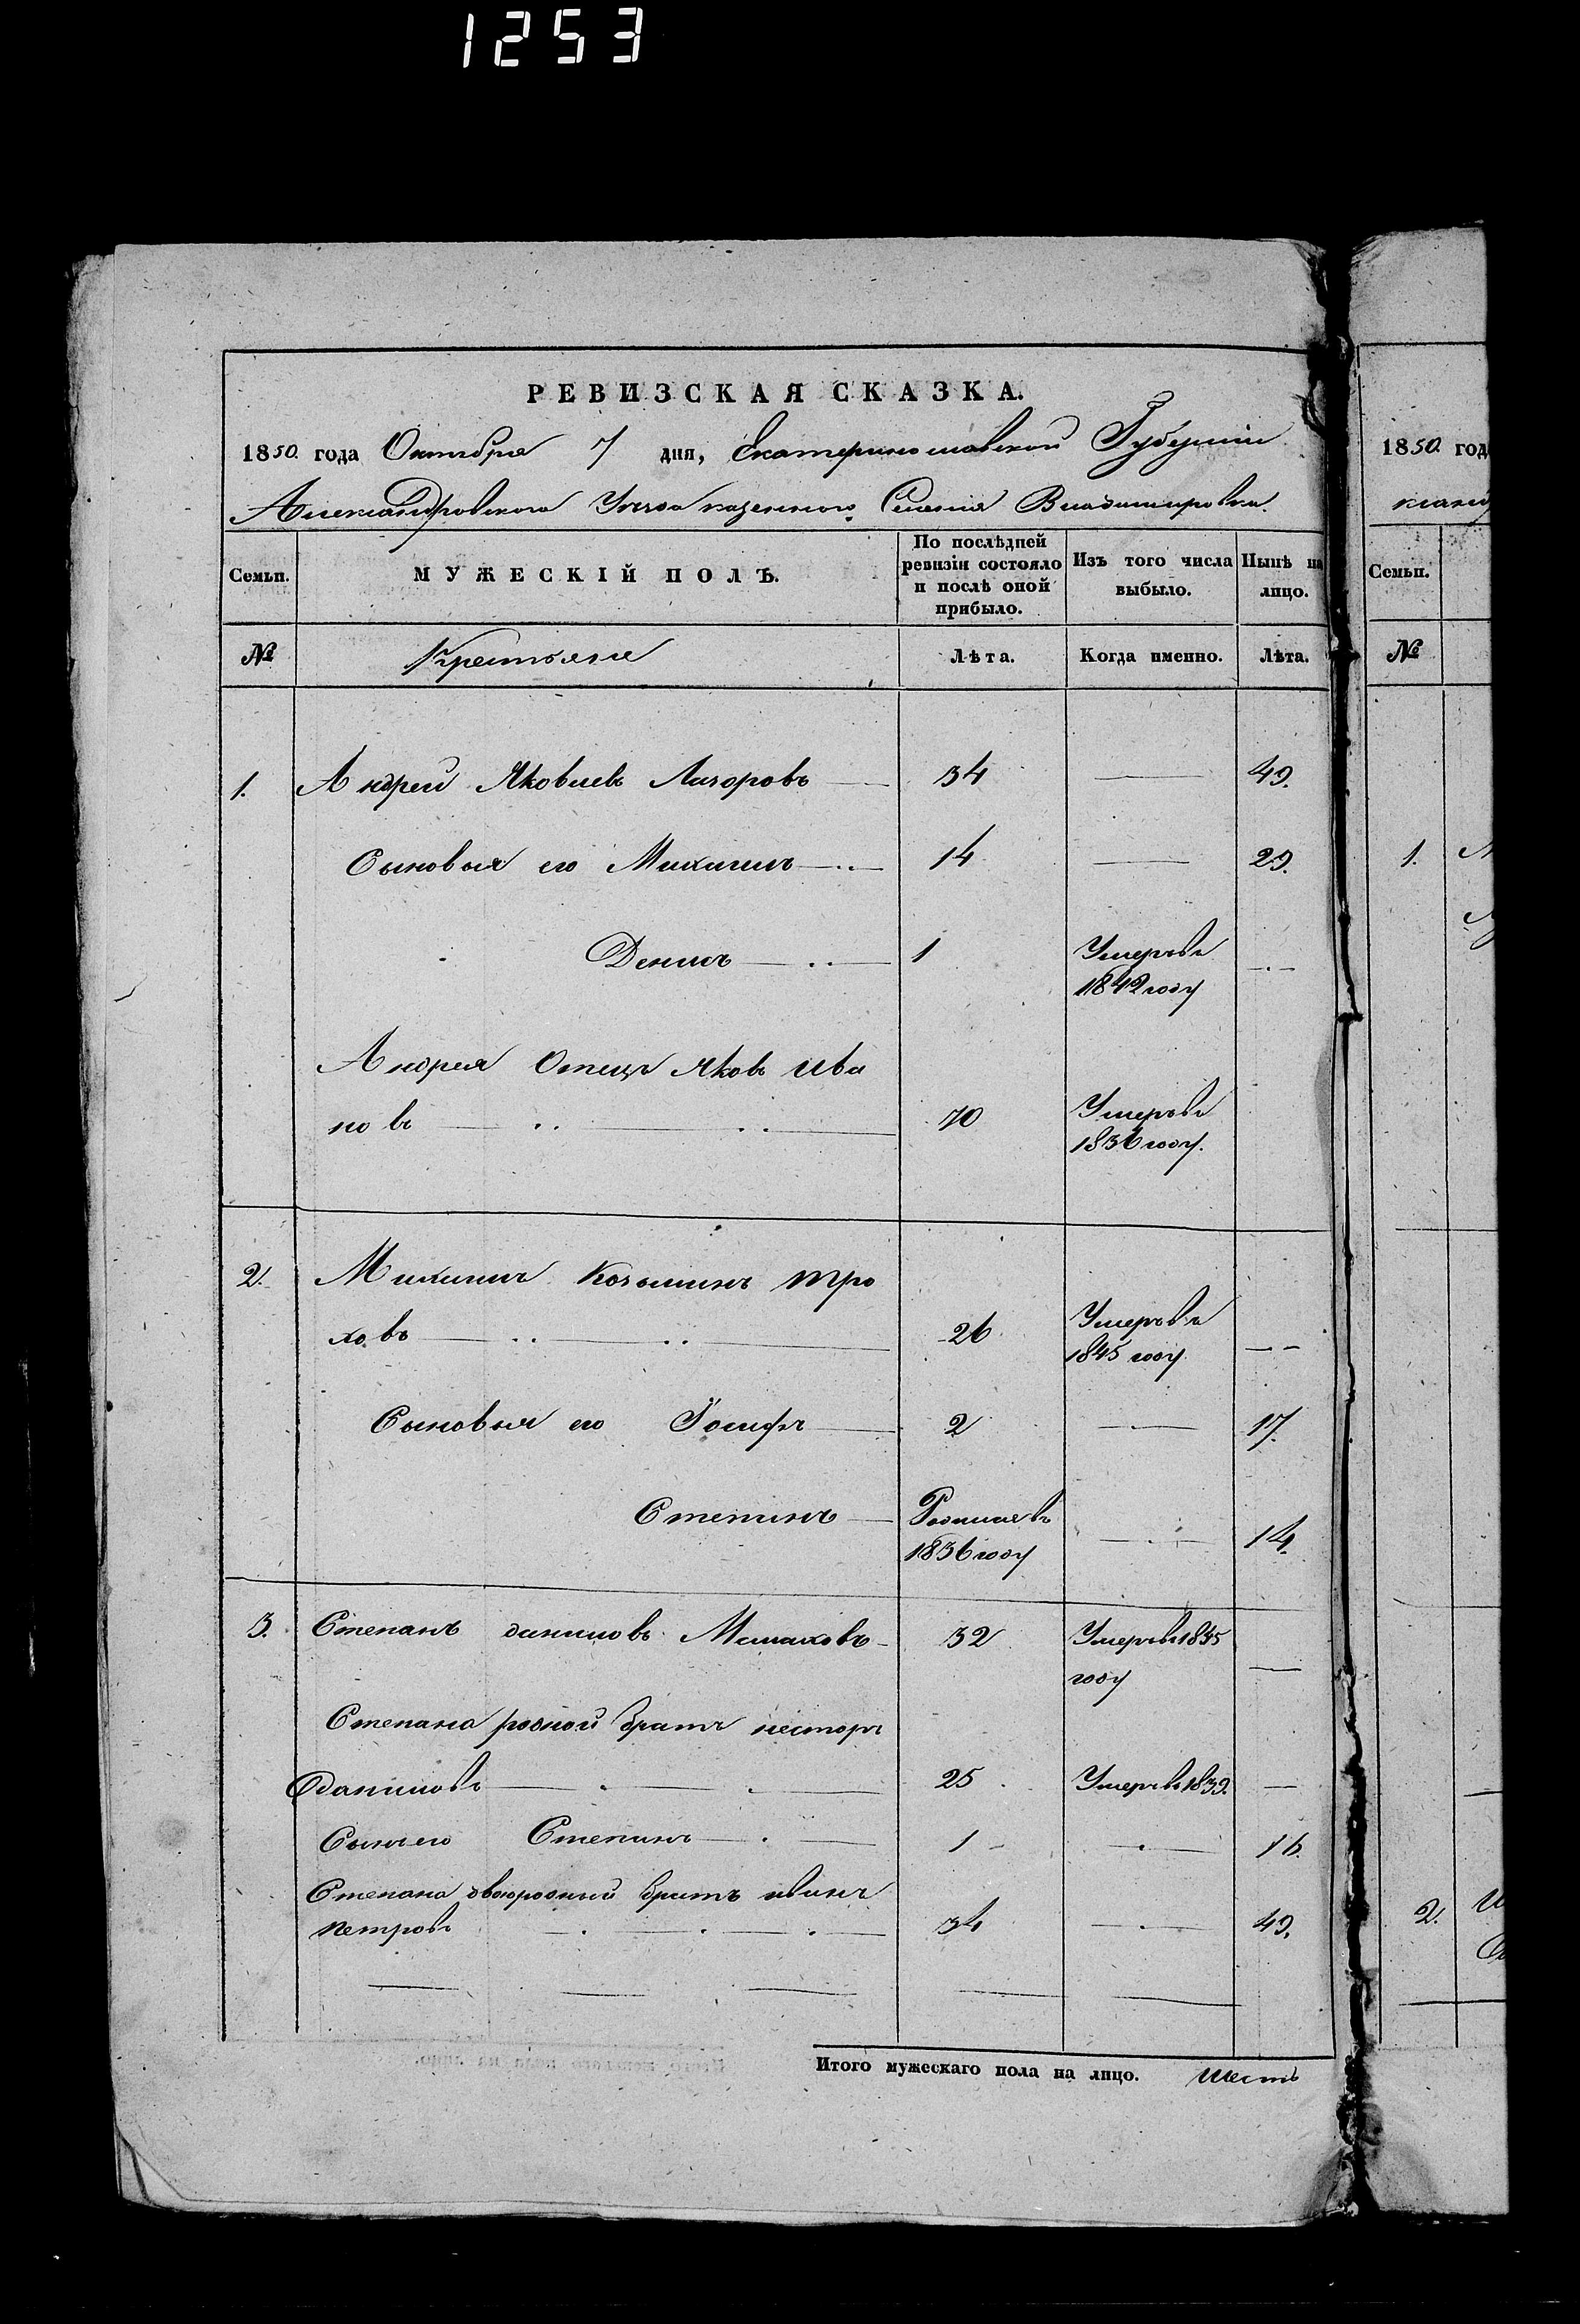 1253
РЕВИЗСКАЯ СКАЗКА.
1850. года Октября 7 дня, Екатеринославской Губернiи
Александровского Уезда казенного Селенiя Владимировки.
Семьи. МУЖЕСКIЙ ПОЛЪ. По послѣдней ревизiи состояло и послѣ оной прибыло. Изъ того числа выбыло. Нынѣ на лицо.
№ Крестьяне Лѣта. Когда именно. Лѣта.
1. Андрей Яковлевъ Лазоровъ 34 — 49.
Сыновья его Михаилъ 14 — 29.
Денисъ 1 Умеръ въ
1842 году
Андрея Отецъ Яковъ Ива
новъ 70 Умеръ въ
1836 году.
2. Михаилъ Козьминъ Тро
ховъ 26 Умеръ въ
1845 году
Сыновья его Iосифъ 2 — 17.
Степанъ Родился въ
1836 году — 14.
3. Степанъ даниловъ Малаховъ 32 Умеръ въ 1835
году
Степана родной братъ несторъ
даниловъ 25 Умеръ въ 1839.
Сынъ его Степанъ 1 — 16.
Степана двоюродный братъ иванъ
петровъ 34 — 49.
Итого мужескаго пола на лицо. шесть
1850. год
Семьи.
№
1.
2.